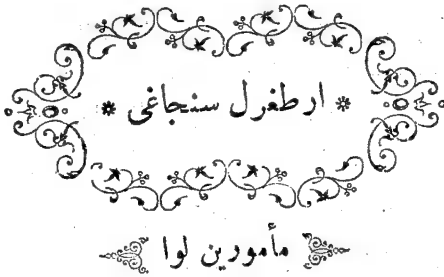 ارطغرل سنجاغی
مأمورین لوا